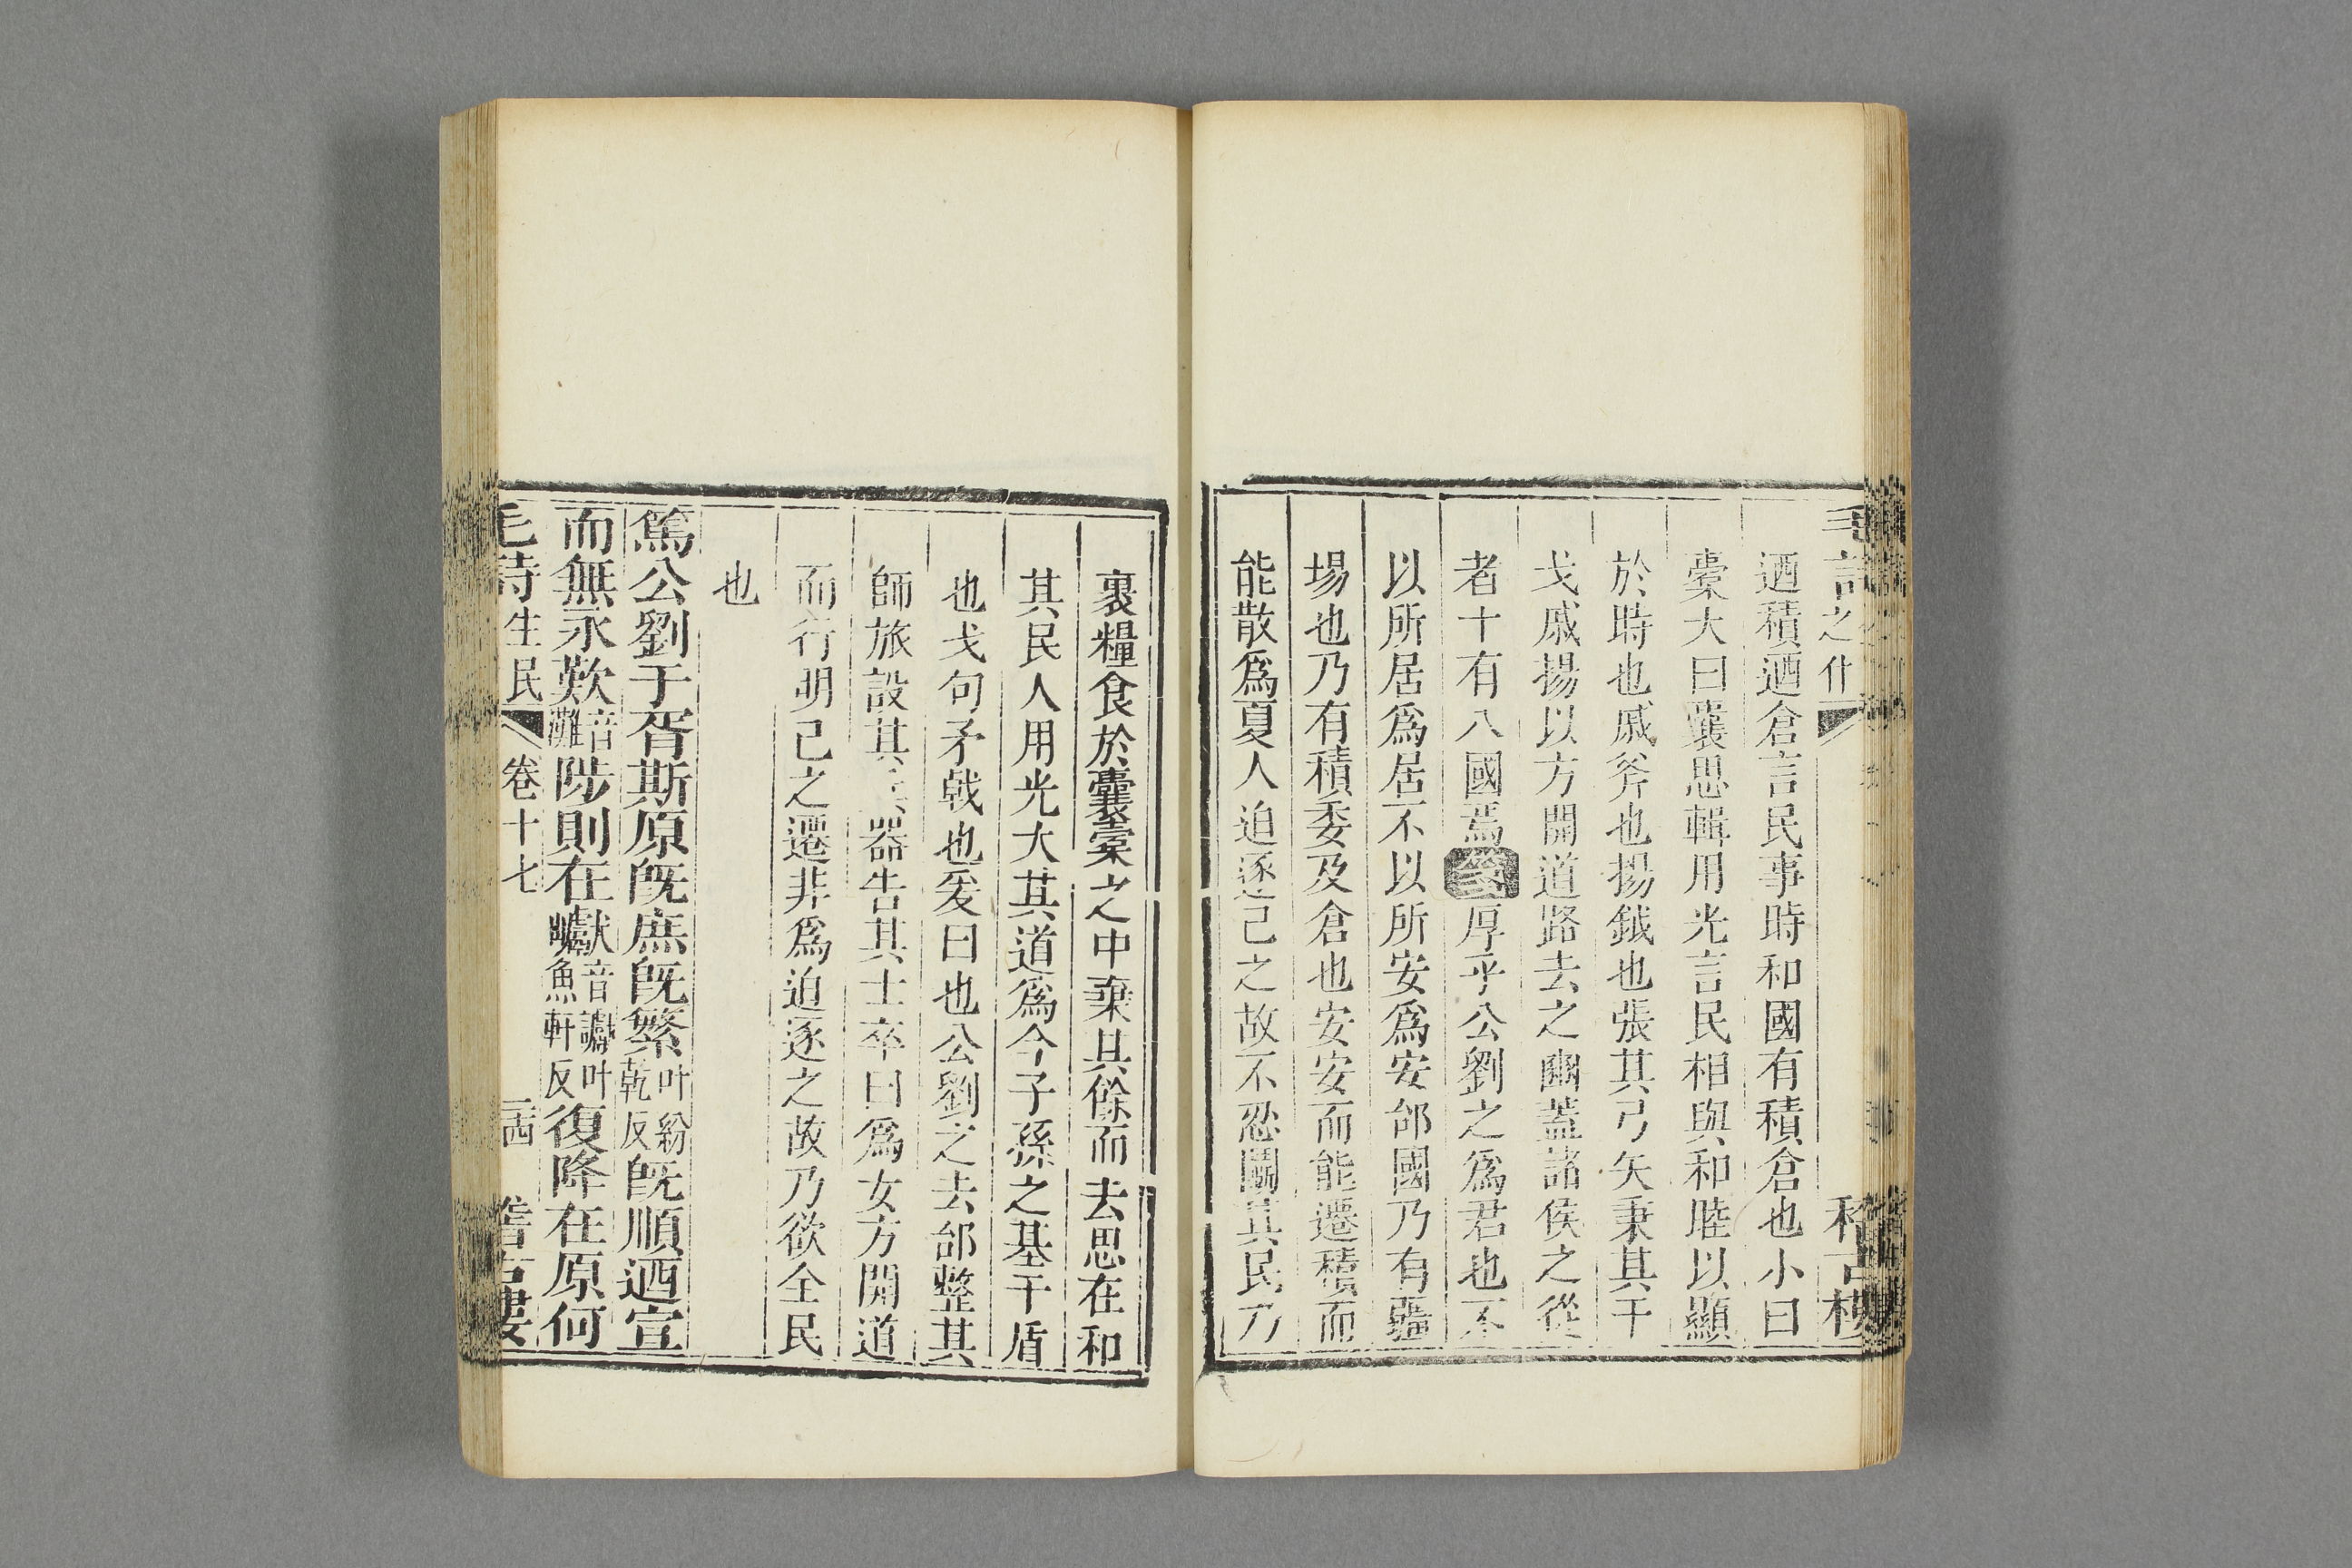 迺積迺倉言民事時和國有積倉也小曰
橐大曰囊思輯用光言民相與和睦以顯
於時也戚斧也揚鉞也張其弓矢秉其干
戈戚揚以方開道路去之豳蓋諸侯之從
者十有八國焉箋厚乎公劉之爲君也不
以所居爲居不以所安爲安邰國乃有疆
場也乃有積委及倉也安安而能遷積而
能散爲夏人迫逐己之故不忍鬭其民乃
裹糧食於囊橐之中棄其餘而去思在和
其民人用光大其道爲今子孫之基干盾
也戈句矛戟也爰曰也公劉之去邰整其
師旅設其兵器告其士卒曰爲女方開道
而行明己之遷非爲迫逐之故乃欲全民
也
篤公劉于胥斯原旣庶旣繁叶紛乾反旣順迺宣
而無永歎音灘陟則在巘音讞叶魚軒反復降在原何
毛詩生民 卷十七